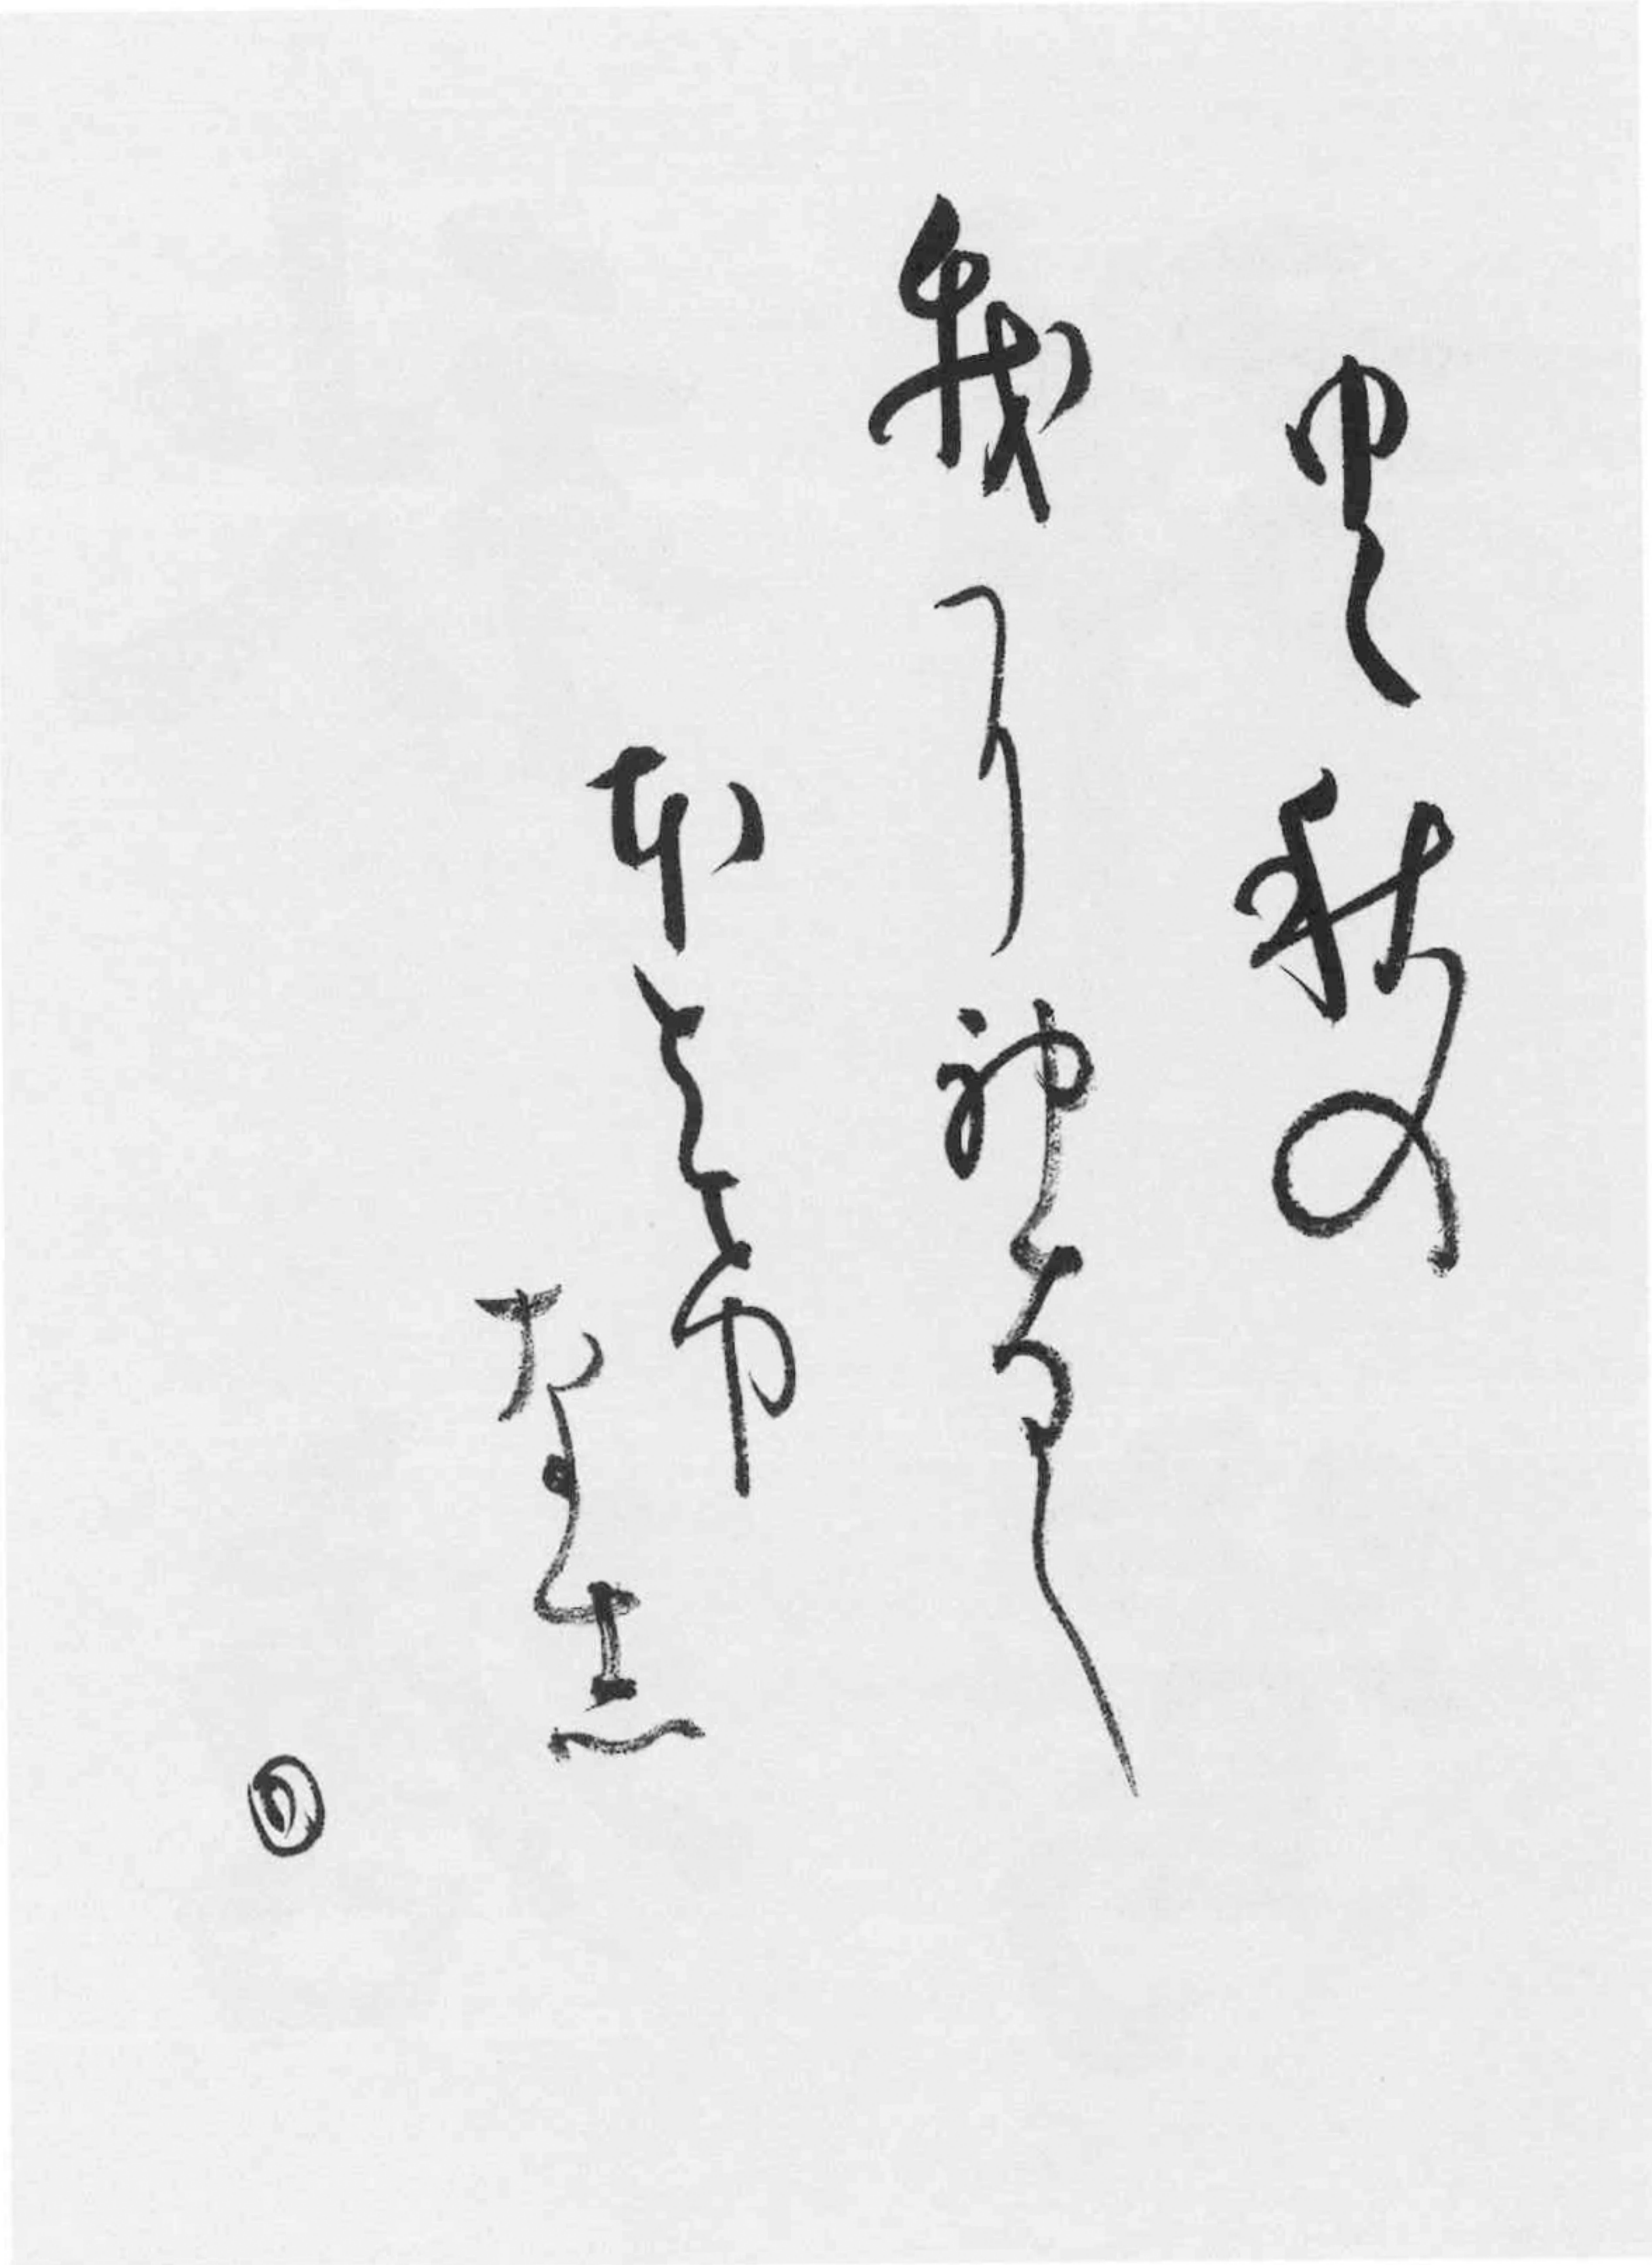 ゆく秋の
我に神なし
ほとけ
なし